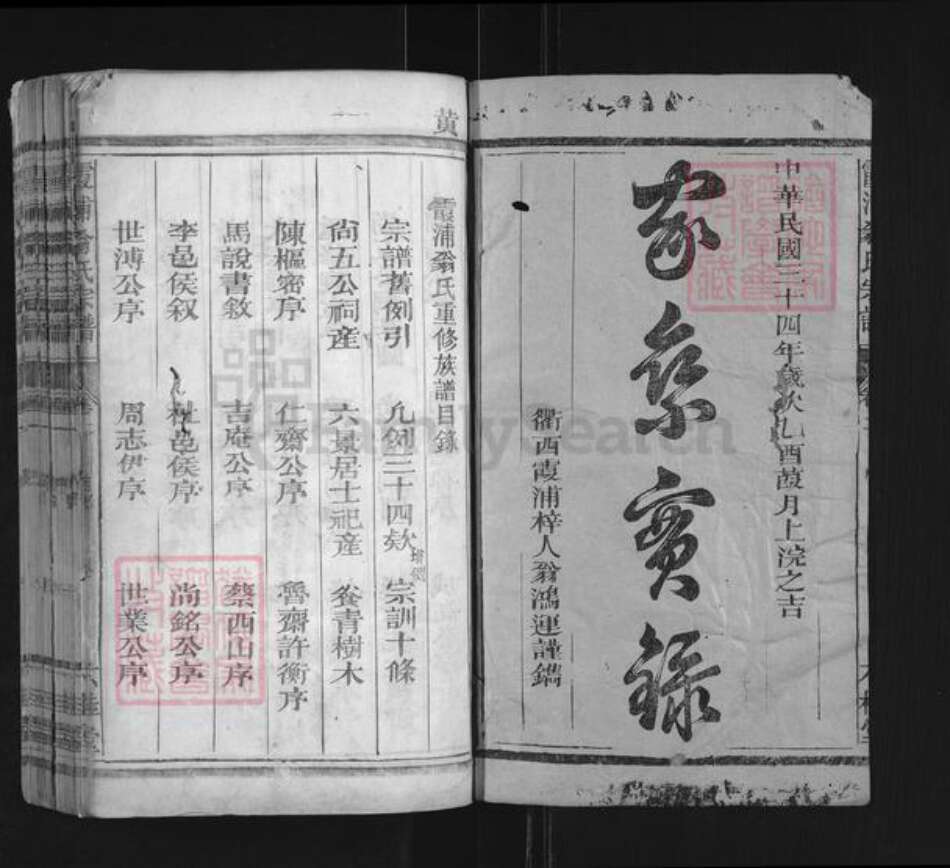 中華民國三十四年歲次乙酉葭月上浣之吉
家乘實錄
衢西霞浦梓人翁鴻運謹鐫
黃
霞浦翁氏重修族譜目錄
宗譜舊例引 凡例三十四欵 宗訓十條
尙五公祠產 六景居士祀產 養青樹木
陳樞密序 仁齋公序 魯齋許衡序
馬說書敘 吉庵公序 蔡西山序
李邑侯叙 杜邑侯序 尚銘公序
世溥公序 周志伊序 世業公序
霞浦翁氏宗譜
六桂堂
FamilySearch